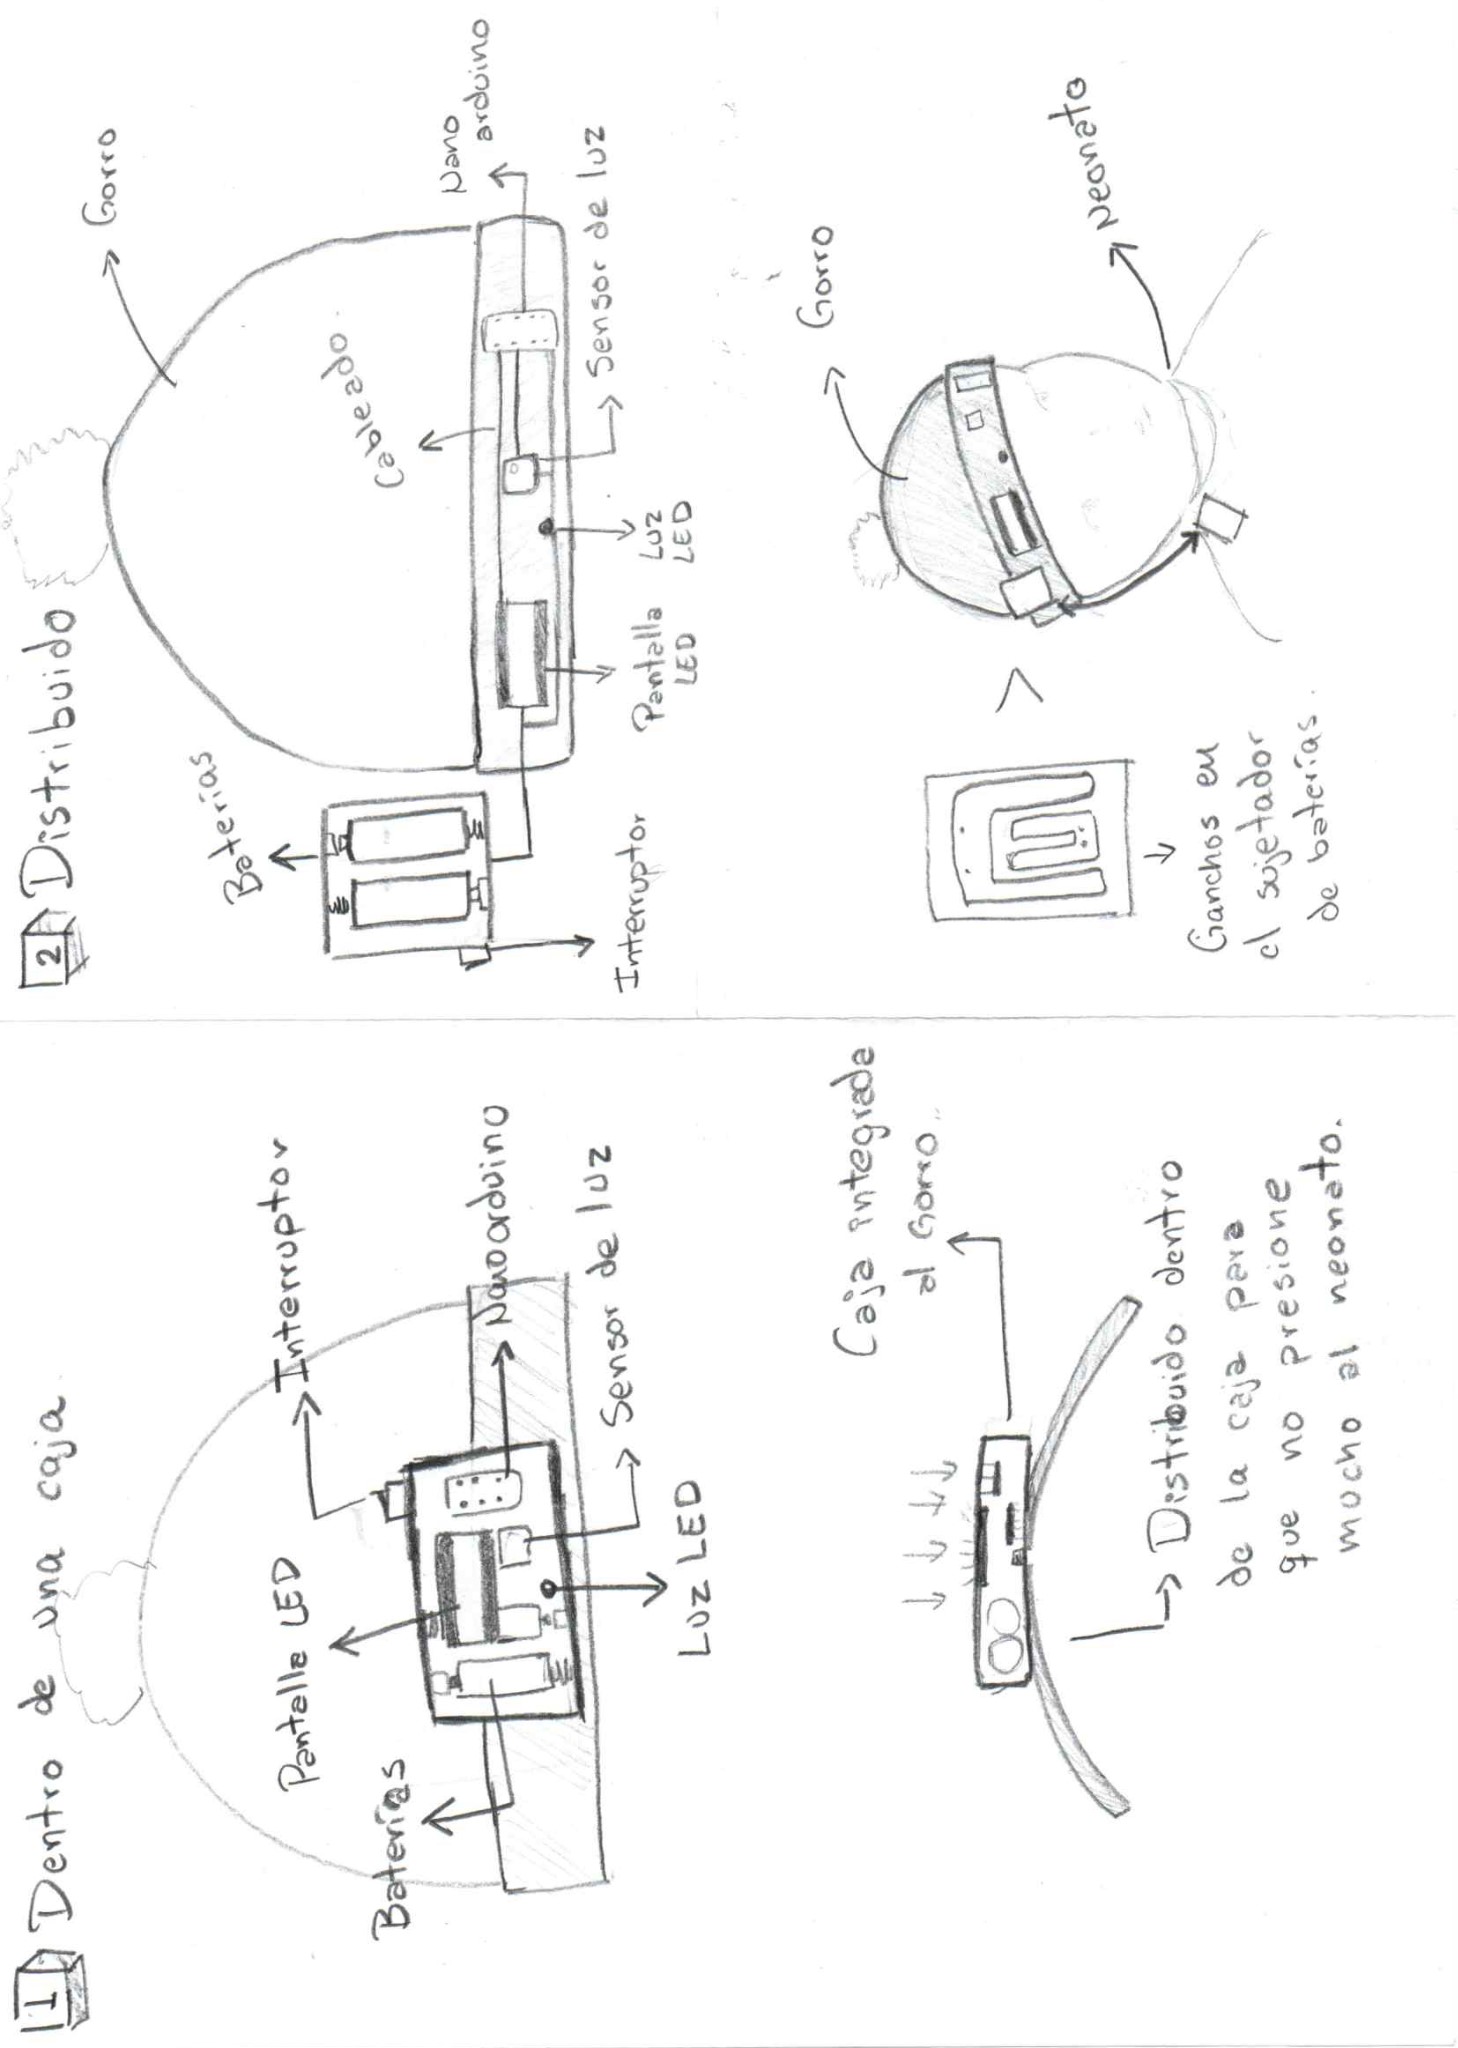 1 Dentro de una caja.
Interruptor
Pantalla LED
Baterías
Nanoarduino
Sensor de luz
Luz LED
Caja integrada
al Gorro.
Distribuido dentro
de la caja para
que no presione
mucho al neonato.
2 Distribuido
Gorro
Baterías
Cableado.
Nano
arduino
Sensor de luz
Luz
LED
Pantalla
LED
Interruptor
Gorro
Neonato
Ganchos en
el sujetador
de baterías.